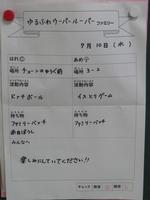 ゆるふわウーパールーパー ファミリー
7月10日(水)
はれ
あめ
場所 チューリップのゆうぐ前
場所 3-2
活動内容
活動内容
ドッヂボール
イスとりゲーム
持ち物
持ち物
ファミリーバッヂ
ファミリーバッヂ
赤白ぼうし
みんなへ
楽しみにしていてください!!
チェック